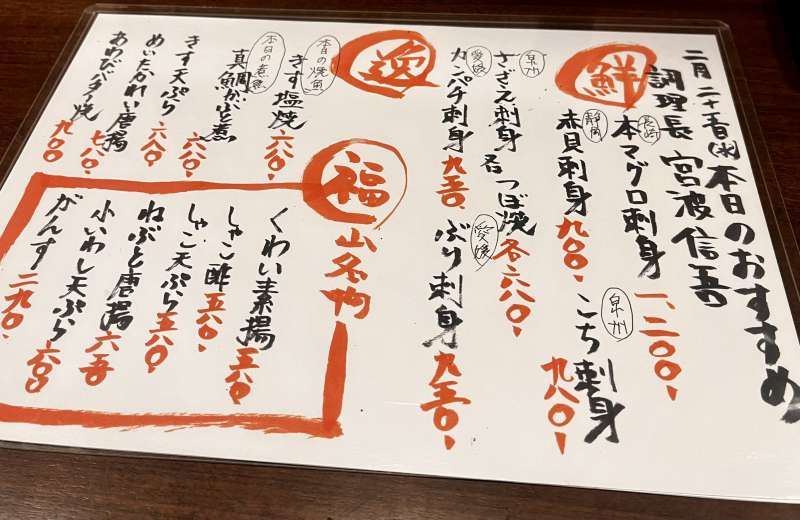 二月二十五日(水)本日のおすすめ
調理長 宮波信吾
鮮
長崎 本マグロ刺身 一、二〇〇、
静岡 赤貝刺身 九〇〇、
泉州 こち刺身 九八〇、
泉州 さざえ刺身 君つぼ焼 各六八〇、
愛媛 カンパチ刺身 九五〇、
愛媛 ぶり刺身 九五〇、
逸
本日の焼魚 きす塩焼 六八〇、
本日の煮魚 真鯛かぶと煮
きす天ぷら 六八〇、
めいたかれい唐揚 六八〇、
あわびバター焼 九〇〇
福山名物
くわい素揚 五八〇、
しゃこ酢 五八〇、
しゃこ天ぷら 五八〇、
ねぶと唐揚 六五〇
小いわし天ぷら 六〇〇
がんす 二九〇、